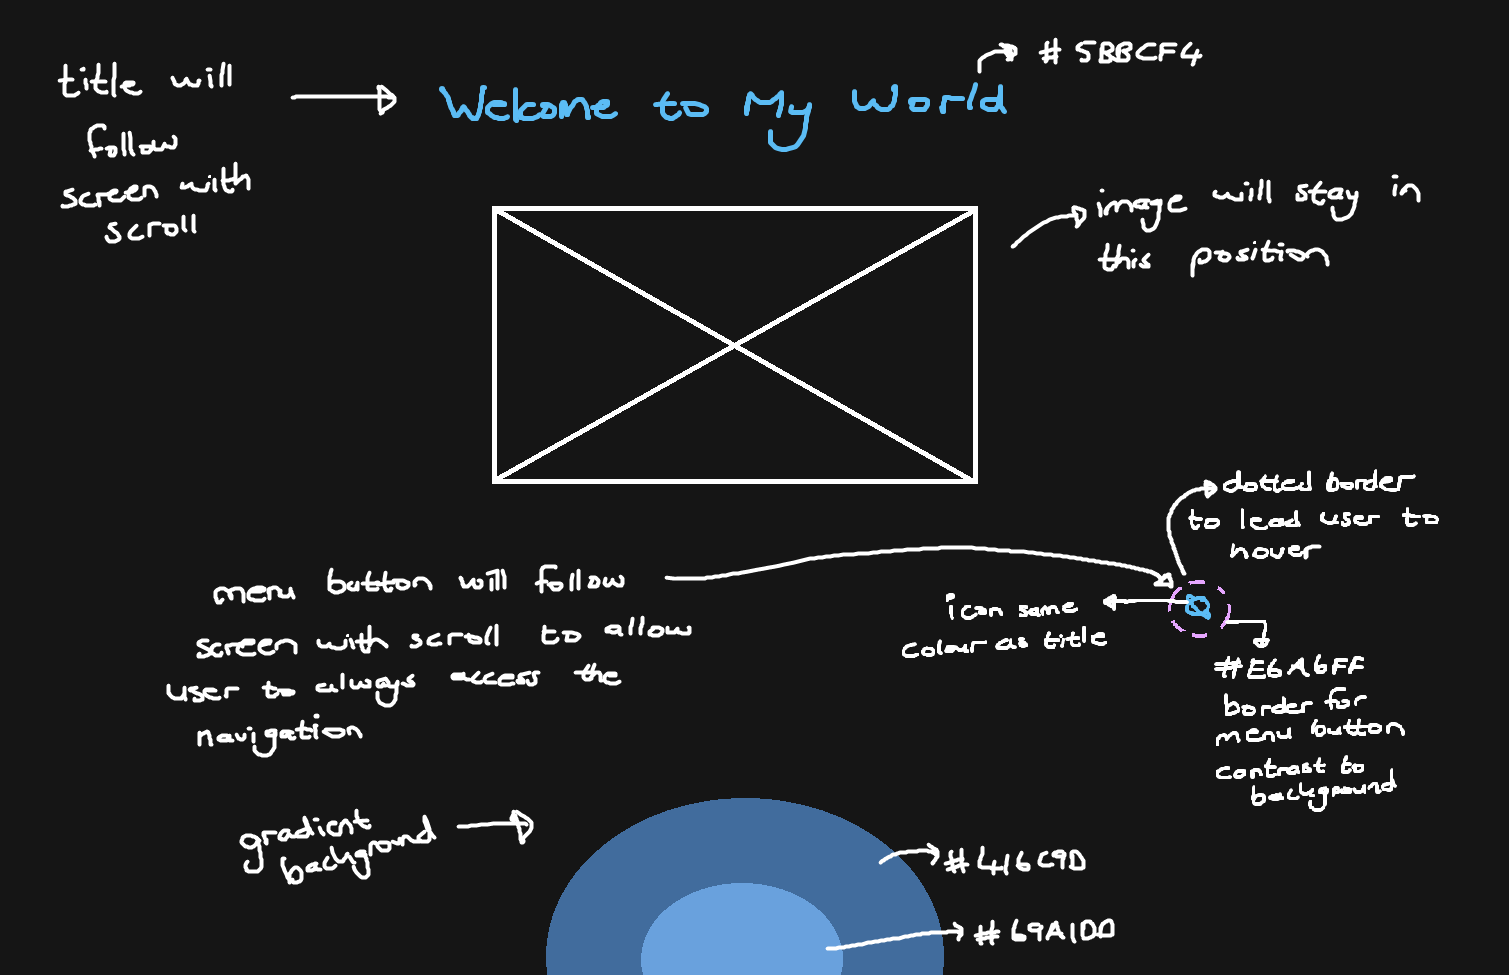 title will
follow
screen with
scroll
Welcome to My World
# 5BBCF4
image will stay in
this position
dotted border
to lead user to
hover
menu button will follow
screen with scroll to allow
user to always access the
navigation
icon same
colour as title
#E6A6FF
border for
menu button
contrast to
background
gradient
background
#416C9D
#69A1DD